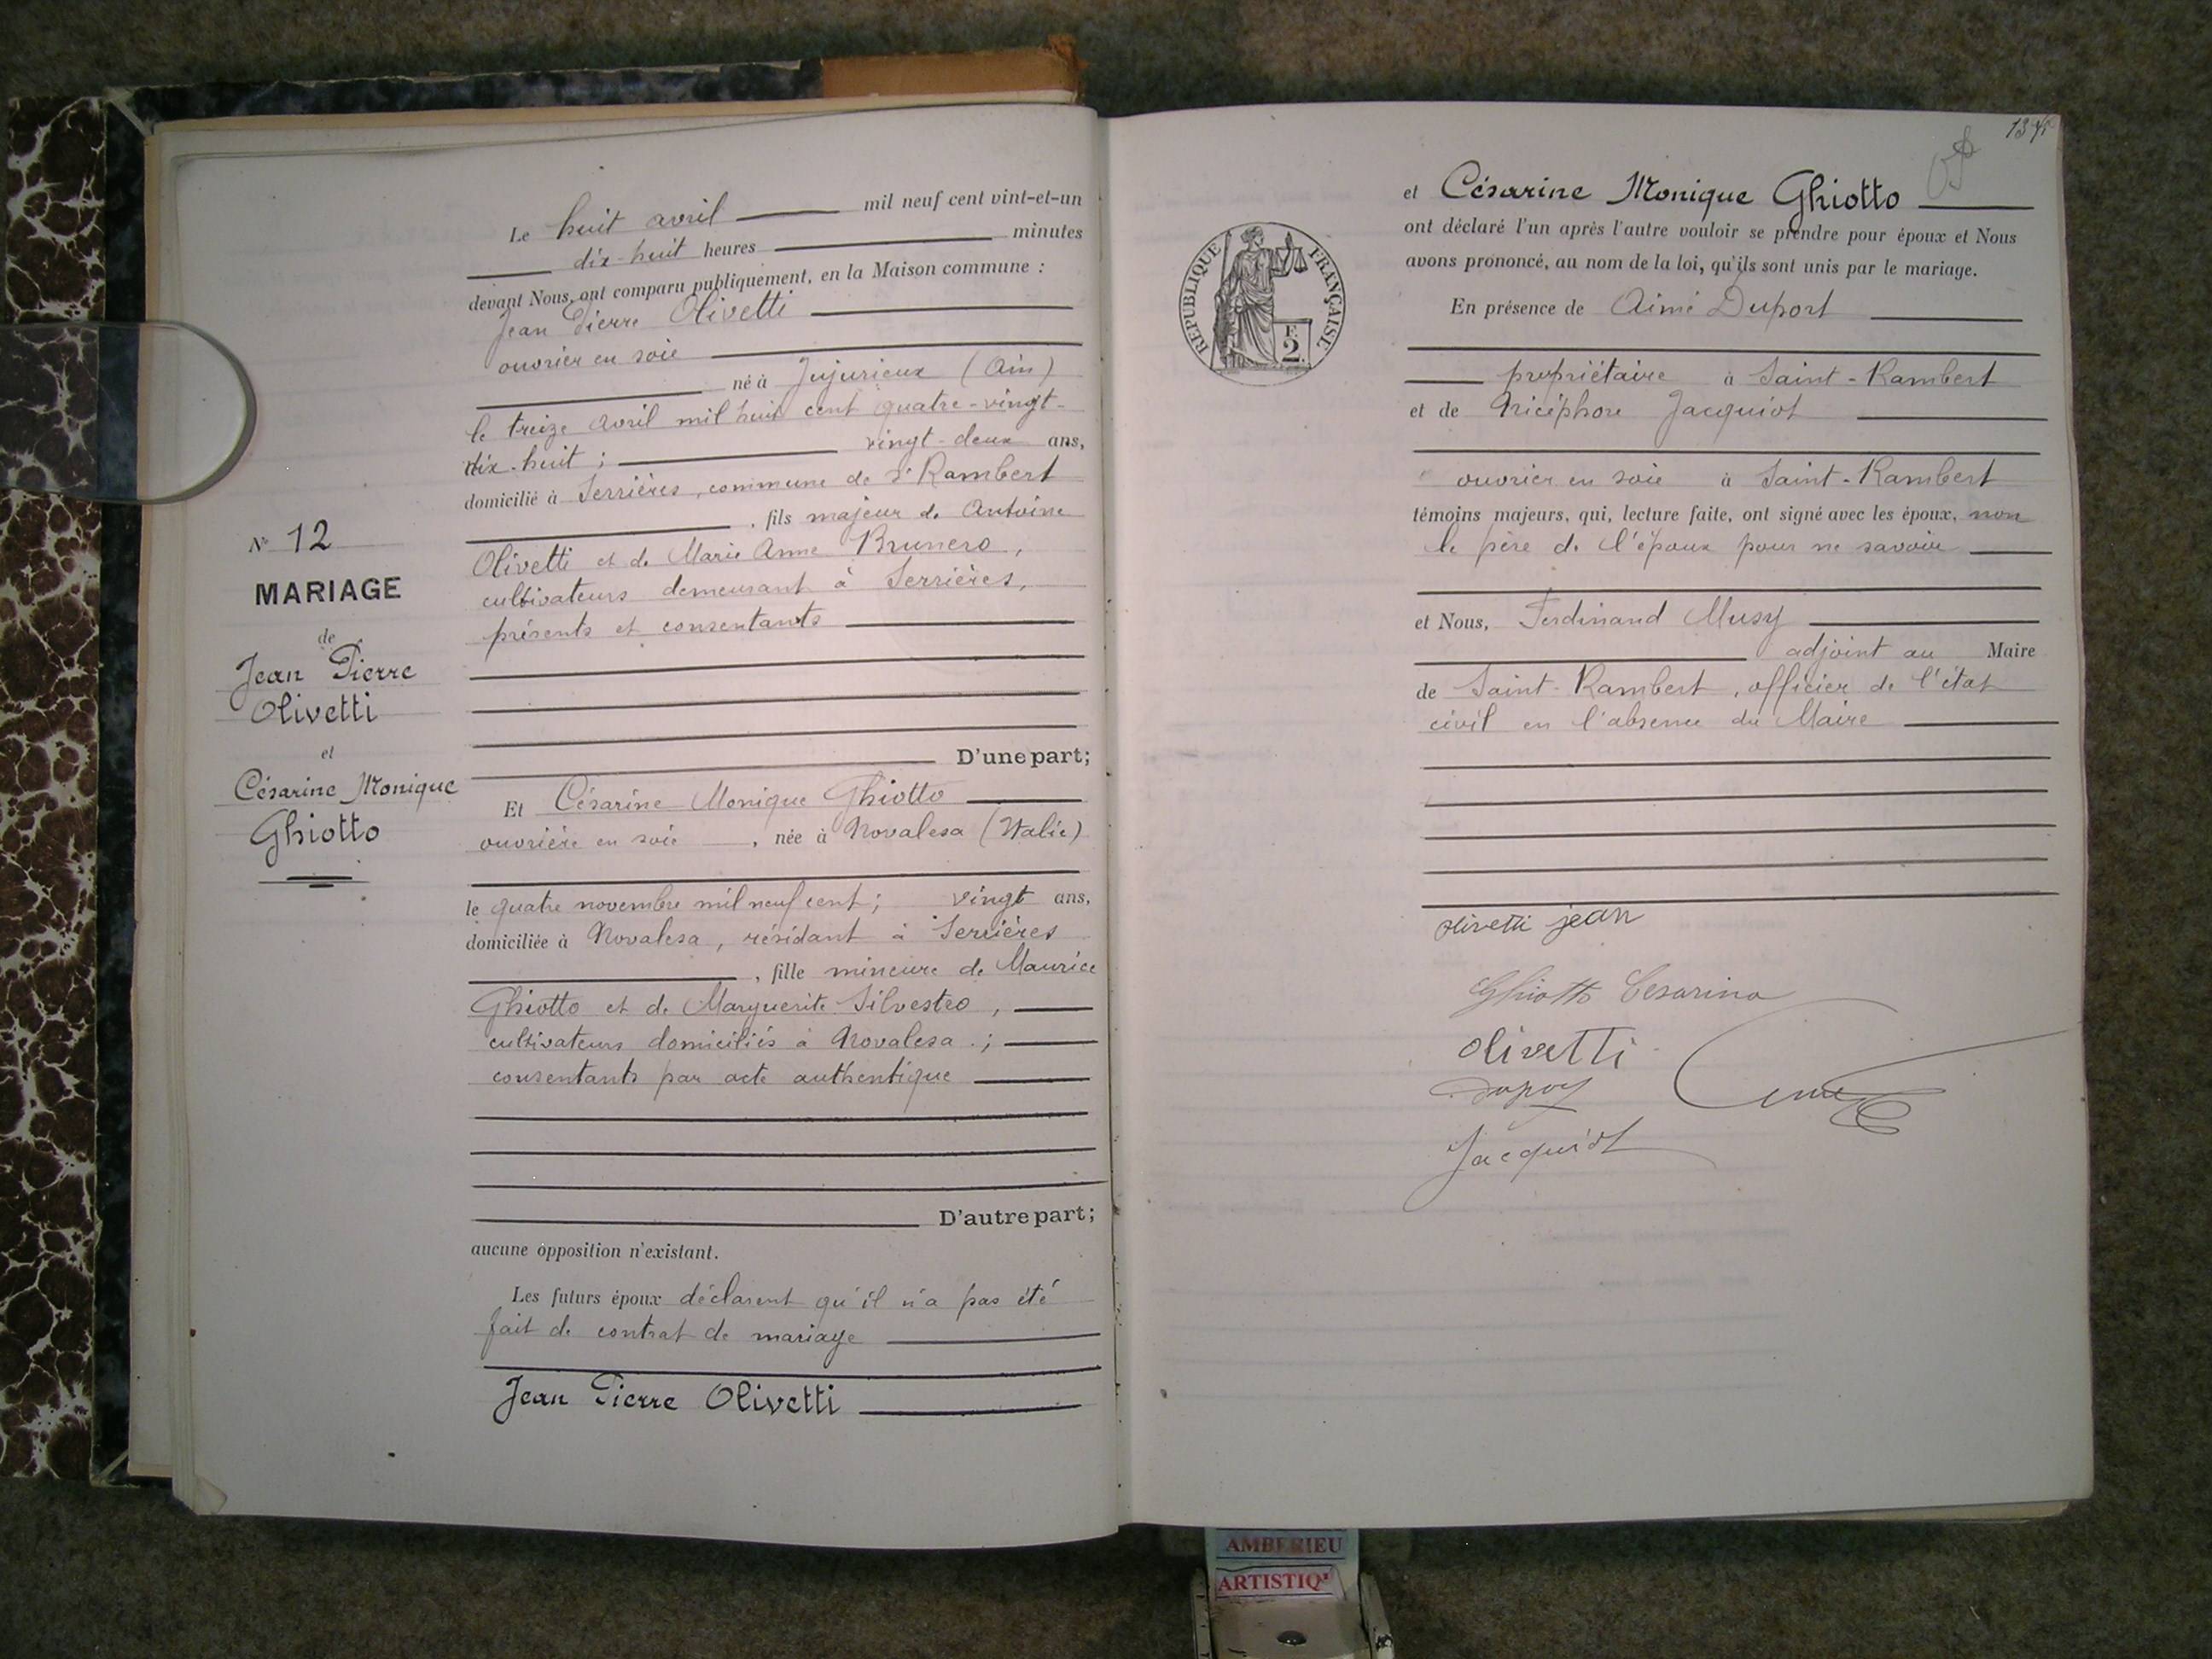 Le huit avril mil neuf cent vint-et-un
dix-huit heures minutes
devant Nous, ont comparu publiquement, en la Maison commune :
Jean Pierre Olivetti
ouvrier en soie
né à Jujurieux (Ain)
le treize avril mil huit cent quatre-vingt-
dix-huit ; vingt-deux ans,
domicilié à Serrières, commune de St Rambert
, fils majeur de Antoine
Olivetti et de Marie Anne Brunero,
cultivateurs demeurant à Serrières,
présents et consentants
D'une part;
N° 12
MARIAGE
de
Jean Pierre
Olivetti
et
Césarine Monique
Ghiotto
Et Césarine Monique Ghiotto
ouvrière en soie , née à Novalesa (Italie)
le quatre novembre mil neuf cent ; vingt ans,
domiciliée à Novalesa, résidant à Serrières
, fille mineure de Maurice
Ghiotto et de Marguerite Silvestro,
cultivateurs domiciliés à Novalesa ;
consentants par acte authentique
D'autre part;
aucune opposition n'existant.
Les futurs époux déclarent qu'il n'a pas été
fait de contrat de mariage
Jean Pierre Olivetti
RÉPUBLIQUE FRANÇAISE
F.
2
et Césarine Monique Ghiotto
ont déclaré l'un après l'autre vouloir se prendre pour époux et Nous
avons prononcé, au nom de la loi, qu'ils sont unis par le mariage.
En présence de Aimé Duport
propriétaire à Saint-Rambert
et de Nicéphore Jacquiot
ouvrier en soie à Saint-Rambert
témoins majeurs, qui, lecture faite, ont signé avec les époux, non
le père de l'époux pour ne savoir
et Nous, Ferdinand Musy
adjoint au Maire
de Saint-Rambert, officier de l'état
civil en l'absence du Maire
olivetti jean
Ghiotto Cesarina
olivetti
Jacquiot
AMBERIEU
ARTISTIQ